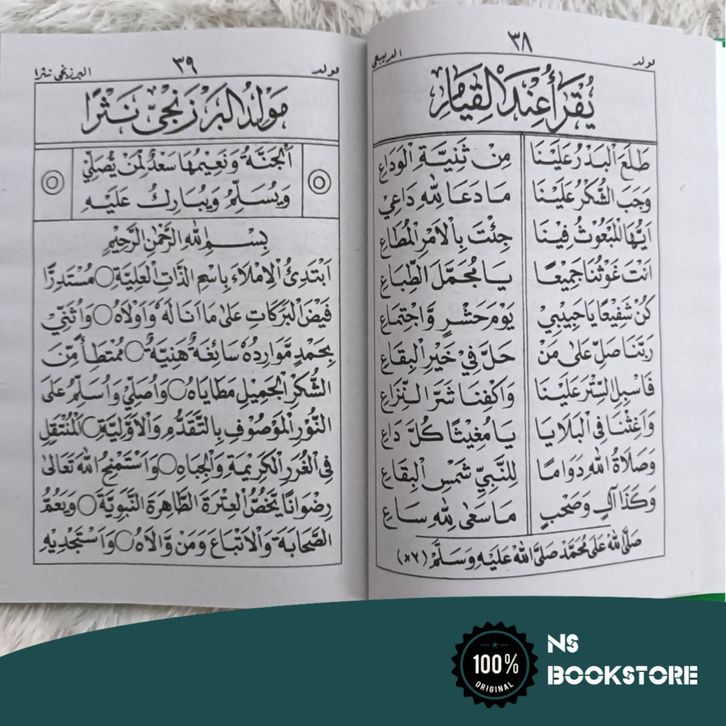 مولد
٣٨
الديبعي
يُقْرَأُ عِنْدَ الْقِيَامِ
طَلَعَ الْبَدْرُ عَلَيْنَا مِنْ ثَنِيَّةِ الْوَدَاعِ
وَجَبَ الشُّكْرُ عَلَيْنَا مَا دَعَا لِلّٰهِ دَاعِي
اَيُّهَا الْمَبْعُوْثُ فِيْنَا جِئْتَ بِالْاَمْرِ الْمُطَاعِ
اَنْتَ غَوْثُنَا جَمِيْعًا يَا مُجَمَّلَ الطِّبَاعِ
كُنْ شَفِيْعًا يَا حَبِيْبِيْ يَوْمَ حَشْرٍ وَّاجْتِمَاعِ
رَبَّنَا صَلِّ عَلٰى مَنْ حَلَّ فِيْ خَيْرِ الْبِقَاعِ
فَاسْبِلِ السِّتْرَ عَلَيْنَا وَاكْفِنَا شَرَّ النِّزَاعِ
وَاَغِثْنَا فِى الْبَلَايَا يَا مُغِيْثًا كُلَّ دَاعِ
وَصَلَاةُ اللهِ دَوَامًا لِلنَّبِيِّ شَمْسِ الْبِقَاعِ
وَكَذَا آلٍ وَصَحْبٍ مَا سَعٰى لِلّٰهِ سَاعِ
صَلَّى اللهُ عَلٰى مُحَمَّدٍ صَلَّى اللهُ عَلَيْهِ وَسَلَّمَ (×٢)
مولد
٣٩
البرزنجي نثرا
مَوْلِدُ الْبَرْزَنْجِيْ نَثْرًا
اَلْجَنَّةُ وَنَعِيْمُهَا سَعْدٌ لِمَنْ يُّصَلِّيْ
وَيُسَلِّمُ وَيُبَارِكُ عَلَيْهِ
بِسْمِ اللهِ الرَّحْمٰنِ الرَّحِيْمِ
اَبْتَدِئُ الْاِمْلَاءَ بِاسْمِ الذَّاتِ الْعَلِيَّةِ ۝ مُسْتَدِرًّا
فَيْضَ الْبَرَكَاتِ عَلٰى مَا اَنَالَهُ وَاَوْلَاهُ ۝ وَاُثَنِّيْ
بِحَمْدٍ مَّوَارِدُهُ سَائِغَةٌ هَنِيَّةٌ ۝ مُمْتَطِأً مِّنَ
الشُّكْرِ الْجَمِيْلِ مَطَايَاهُ ۝ وَاُصَلِّيْ وَاُسَلِّمُ عَلَى
النُّوْرِ الْمَوْصُوْفِ بِالتَّقَدُّمِ وَالْاَوَّلِيَّةِ ۝ اَلْمُنْتَقِلِ
فِى الْغُرَرِ الْكَرِيْمَةِ وَالْجِبَاهِ ۝ وَاَسْتَمْنِحُ اللهَ تَعَالٰى
رِضْوَانًا يَّخُصُّ الْعِتْرَةَ الطَّاهِرَةَ النَّبَوِيَّةَ ۝ وَيَعُمُّ
الصَّحَابَةَ وَالْاَتْبَاعَ وَمَنْ وَّالَاهُ ۝ وَاَسْتَجْدِيْهِ
100%
ORIGINAL
NS
BOOKSTORE